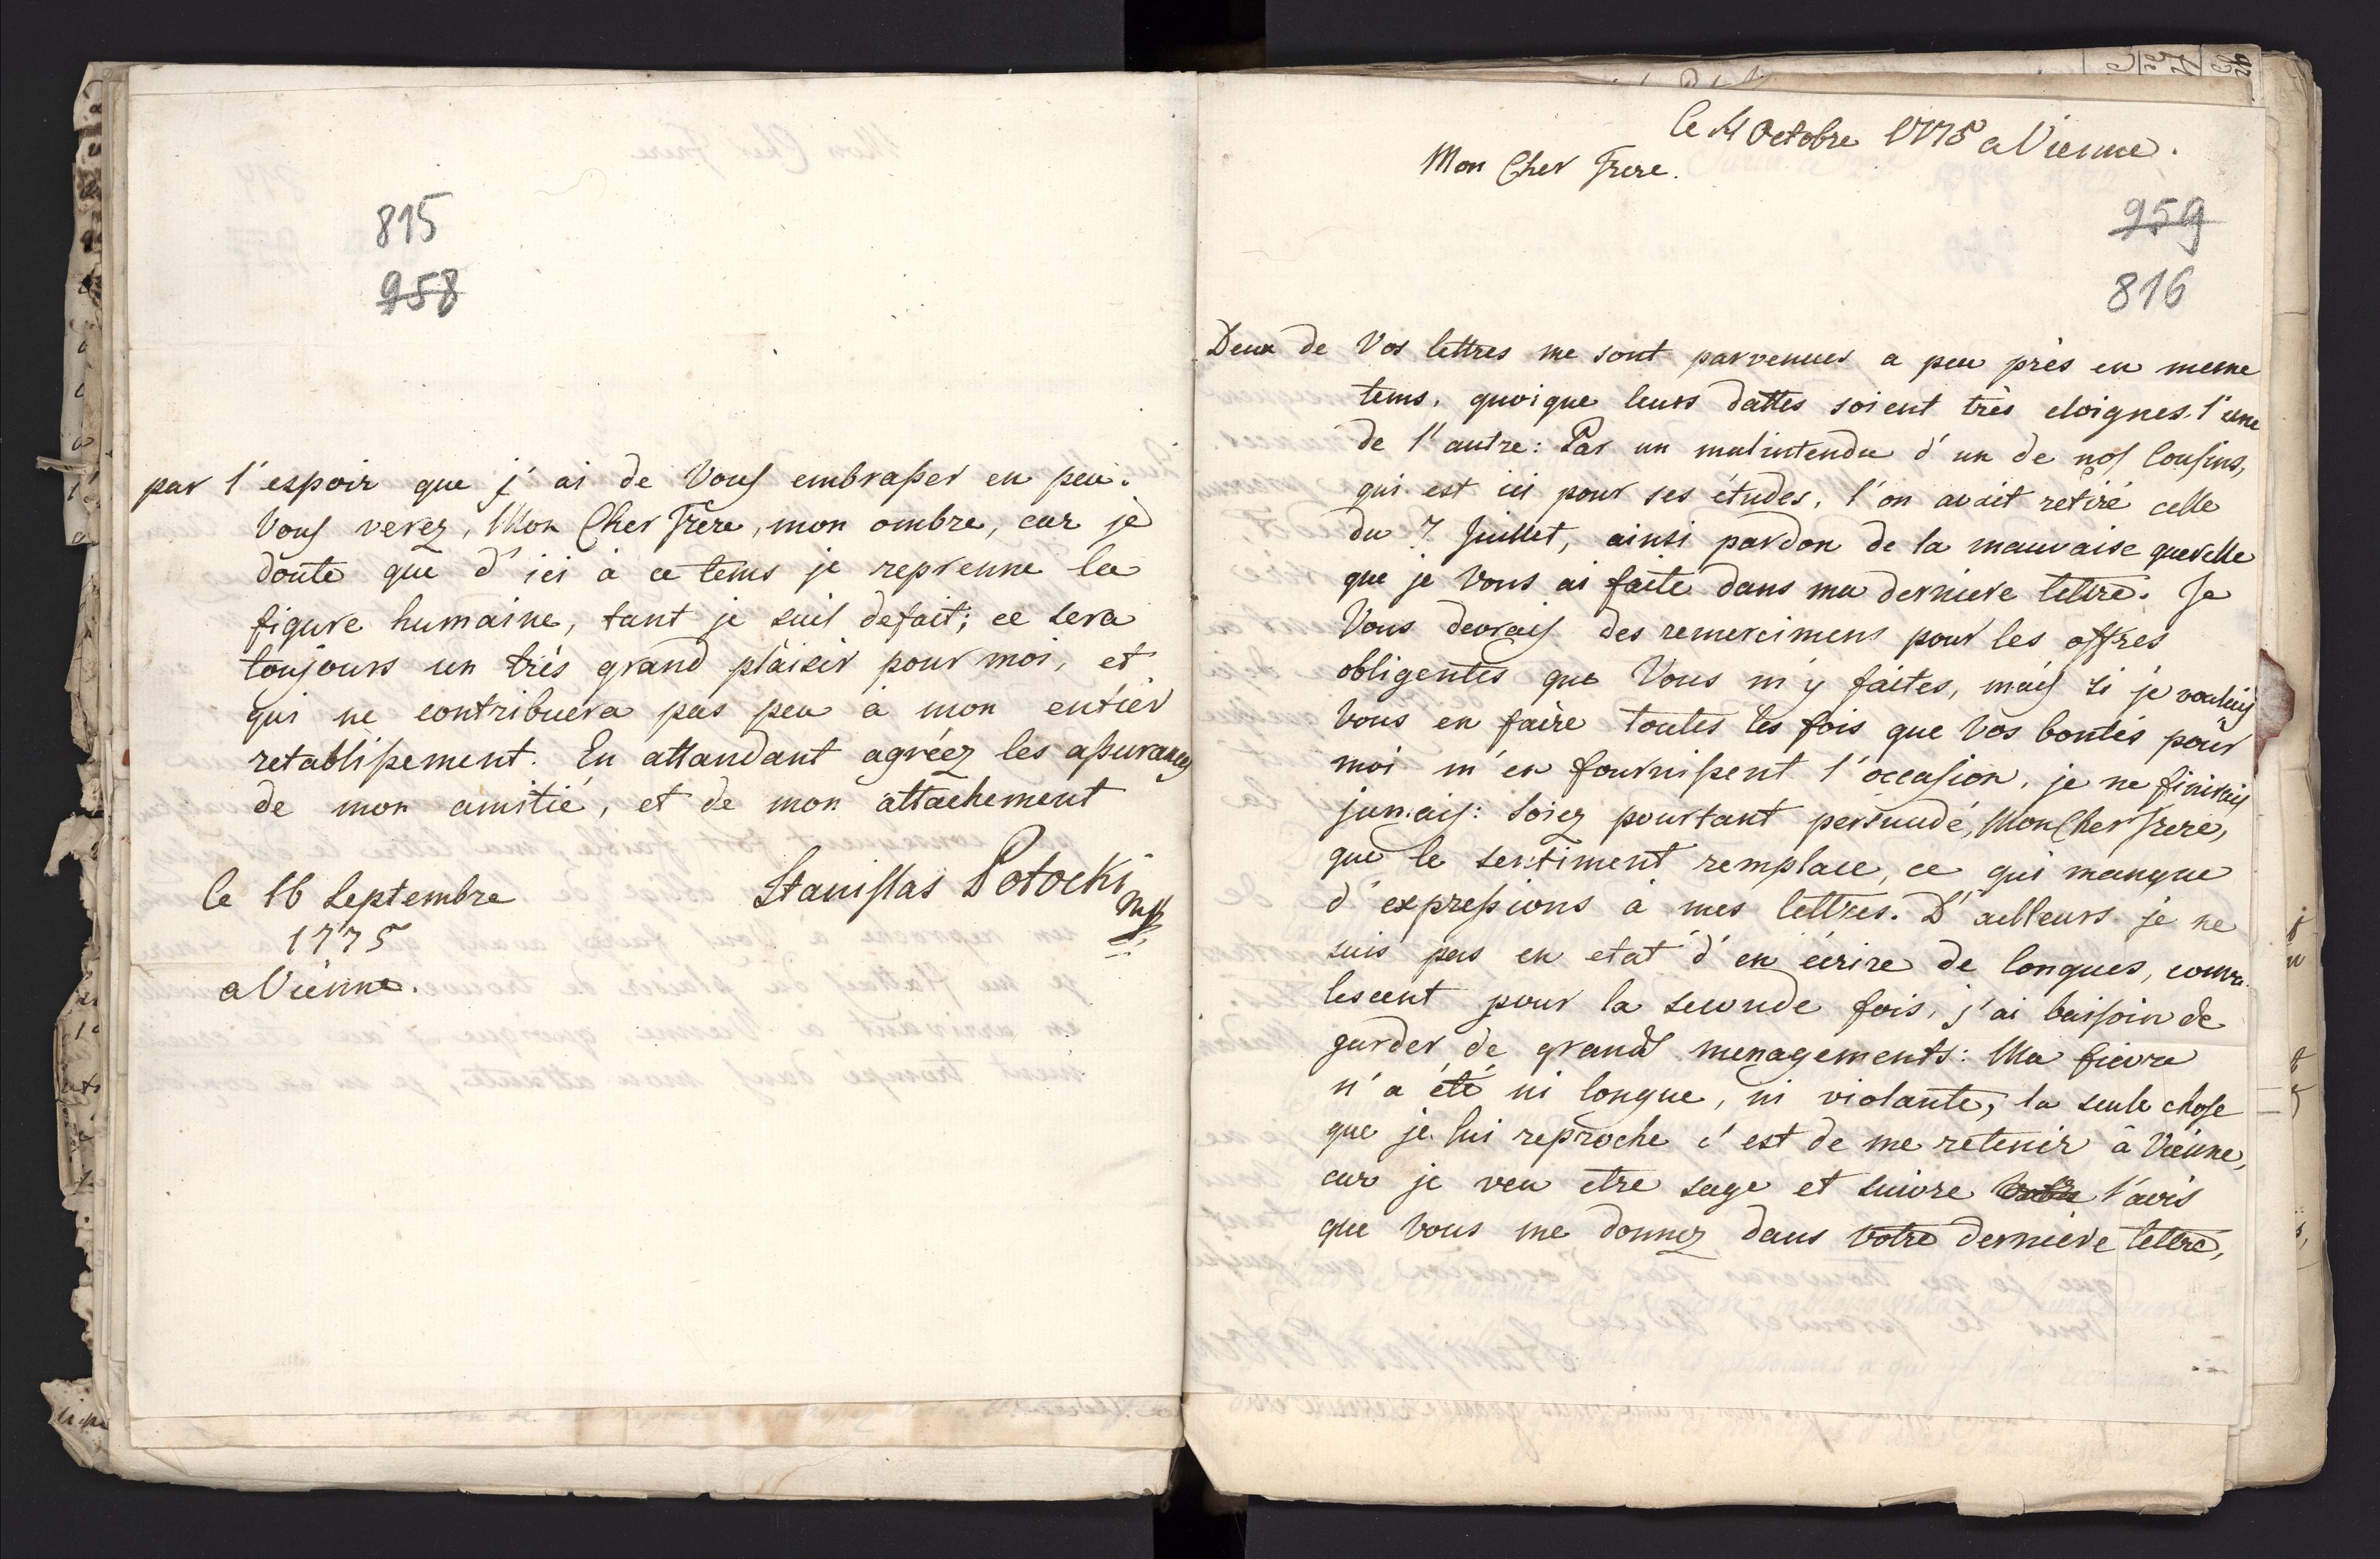 815
958
par l'espoir que j'ai de Vous embrasser en peu.
Vous verez, Mon Cher Frere, mon ombre, car je
doute que d'ici à ce tems je reprenne la
figure humaine, tant je suis defait; ce sera
toujours un très grand plaisir pour moi, et
qui ne contribuera pas peu à mon entier
retablissement. En attandant agréez les assurances
de mon amitié, et de mon attachement
Stanislas Potocki
le 16 Septembre
1775
a Vienne.
le 11 Octobre 1775 a Vienne.
Mon Cher Frere.
959
816
Deux de Vos lettres me sont parvenues a peu près en meme
tems, quoique leurs dattes soient très eloignes l'une
de l'autre: Par un malintendu d'un de nos Cousins,
qui est ici pour ses études, l'on avait retiré celle
du 7 Juillet, ainsi pardon de la mauvaise querelle
que je Vous ai faite dans ma derniere lettre. Je
Vous devrais des remercimens pour les offres
obligentes que Vous m'y faites, mais si je voulais
Vous en faire toutes les fois que Vos bontés pour
moi m'en fournissent l'occasion, je ne finirais
jamais: soiez pourtant persuadé, Mon Cher Frere,
que le sentiment remplace, ce qui manque
d'expressions à mes lettres. D'ailleurs je ne
suis pas en etat d'en écrire de longues, conva-
lescent pour la seconde fois, j'ai baisoin de
garder de grands menagements: Ma fievre
n'a été ni longue, ni violante, la seule chose
que je lui reproche c'est de me retenir à Vienne,
car je veu etre sage et suivre l'avis
que Vous me donnez dans Votre derniere lettre,